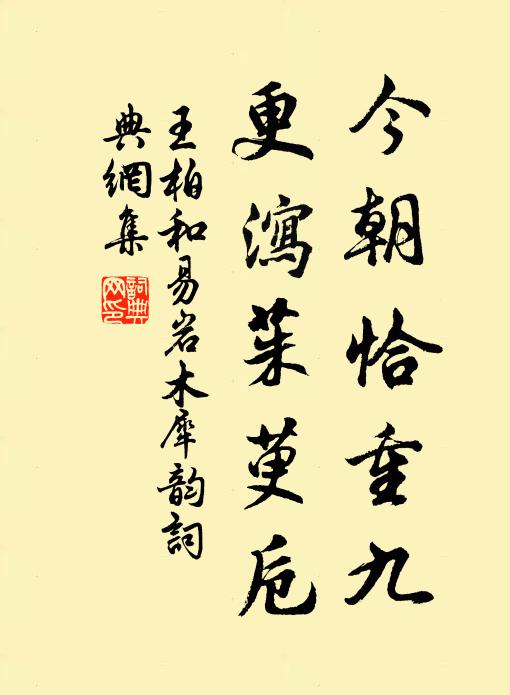 今朝恰重九
更瀉茱萸卮
王柏和易岩木犀韵詞
典網集
詞典
网印